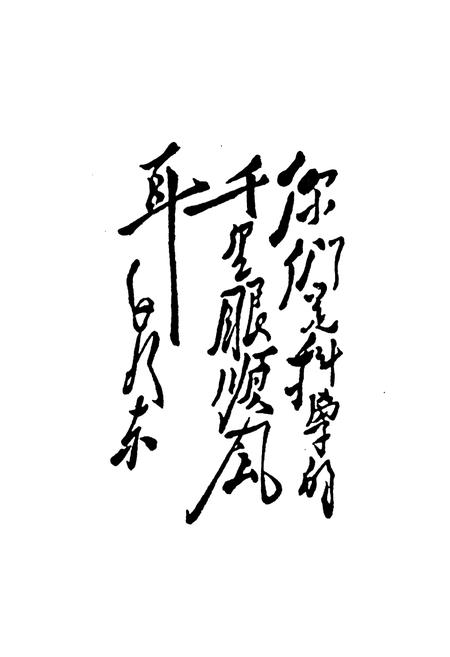 你们是科學的
千里眼順風
耳
毛泽东